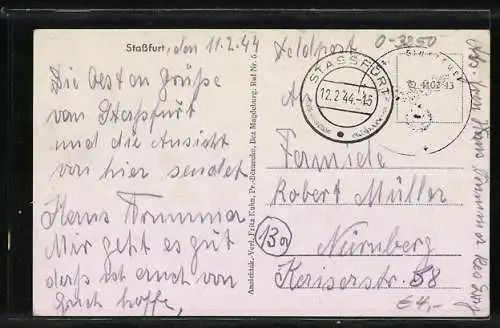 Staßfurt, den 11.2.44
Die besten Grüße
von Staßfurt
und die Ansicht
von hier sendet
Hans
Mir geht es gut
daß ist auch von
Euch hoffe,
Ansichtsk.-Verl. Fritz Kühn, Pr.-Börnecke, Bez. Magdeburg. Ruf Nr. 6
Feldpost
0-3250
STASSFURT
12.2.44.-15
An
Familie
Robert Müller
13a
Nürnberg
Keiserstr. 58
€4,-
Abs.